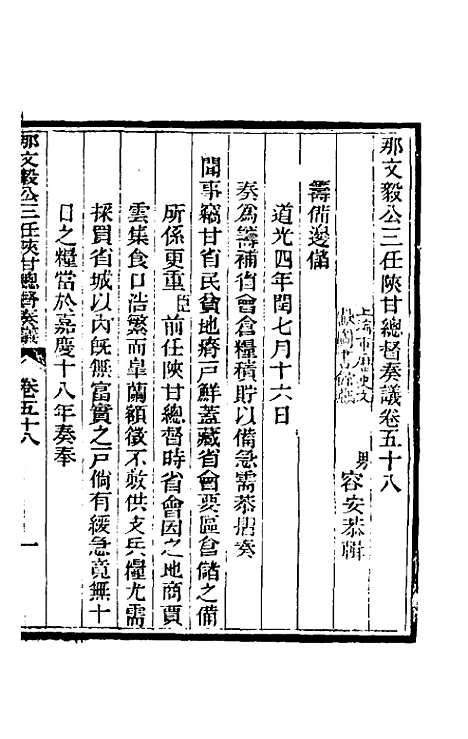 那文毅公三任陝甘總督奏議卷五十八
上海市歷史文
獻圖書館藏
男
容安恭輯
籌備邊儲
道光四年閏七月十六日
奏爲籌補省會倉糧積貯以備急需恭摺奏
聞事竊甘省民貧地瘠戶鮮蓋藏省會要區倉儲之備
所係更重臣前任陝甘總督時省會因之地商賈
雲集食口浩繁而臯蘭額徵不敷供支兵糧尤需
採買省城以內旣無富實之戶倘有緩急竟無十
日之糧當於嘉慶十八年奏奉
那文毅公三任陝甘總督奏議
卷五十八
一